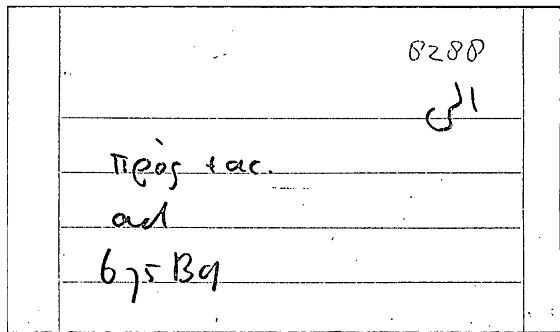 8288
الى
πρὸς +ac.
ad
675 B9